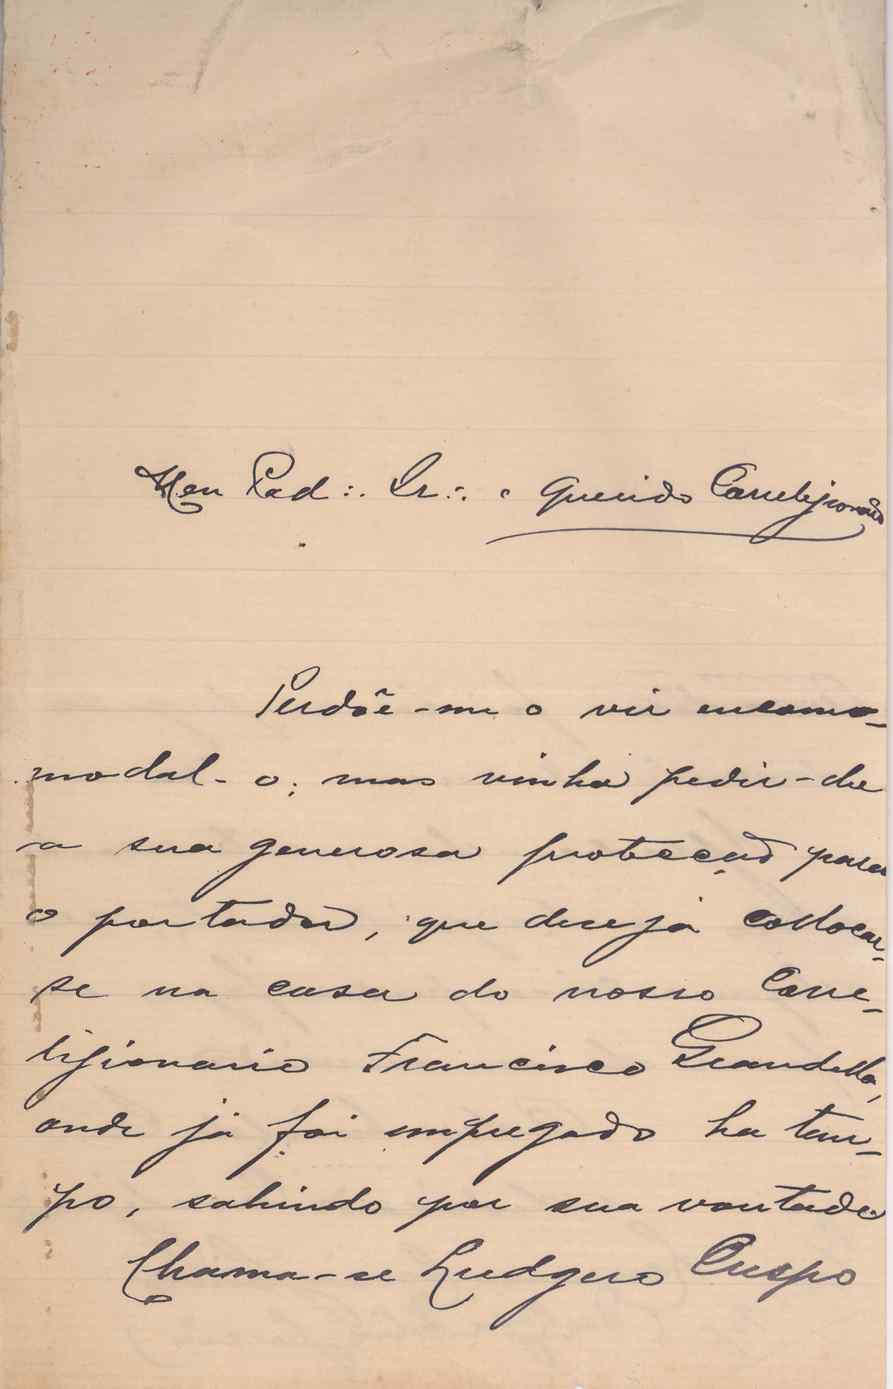 Meu Pad∴ Ir∴ e querido Correligionario
Perdôe-me o vir encomo-
modal-o; mas vinha pedir-lhe
a sua generosa protecção para
o portador, que deseja collocar-
se na casa do nosso Corre-
ligionario Francisco Grandella,
onde já foi empregado ha tem-
po, sahindo por sua vontade
Chama-se Ludgero Crespo